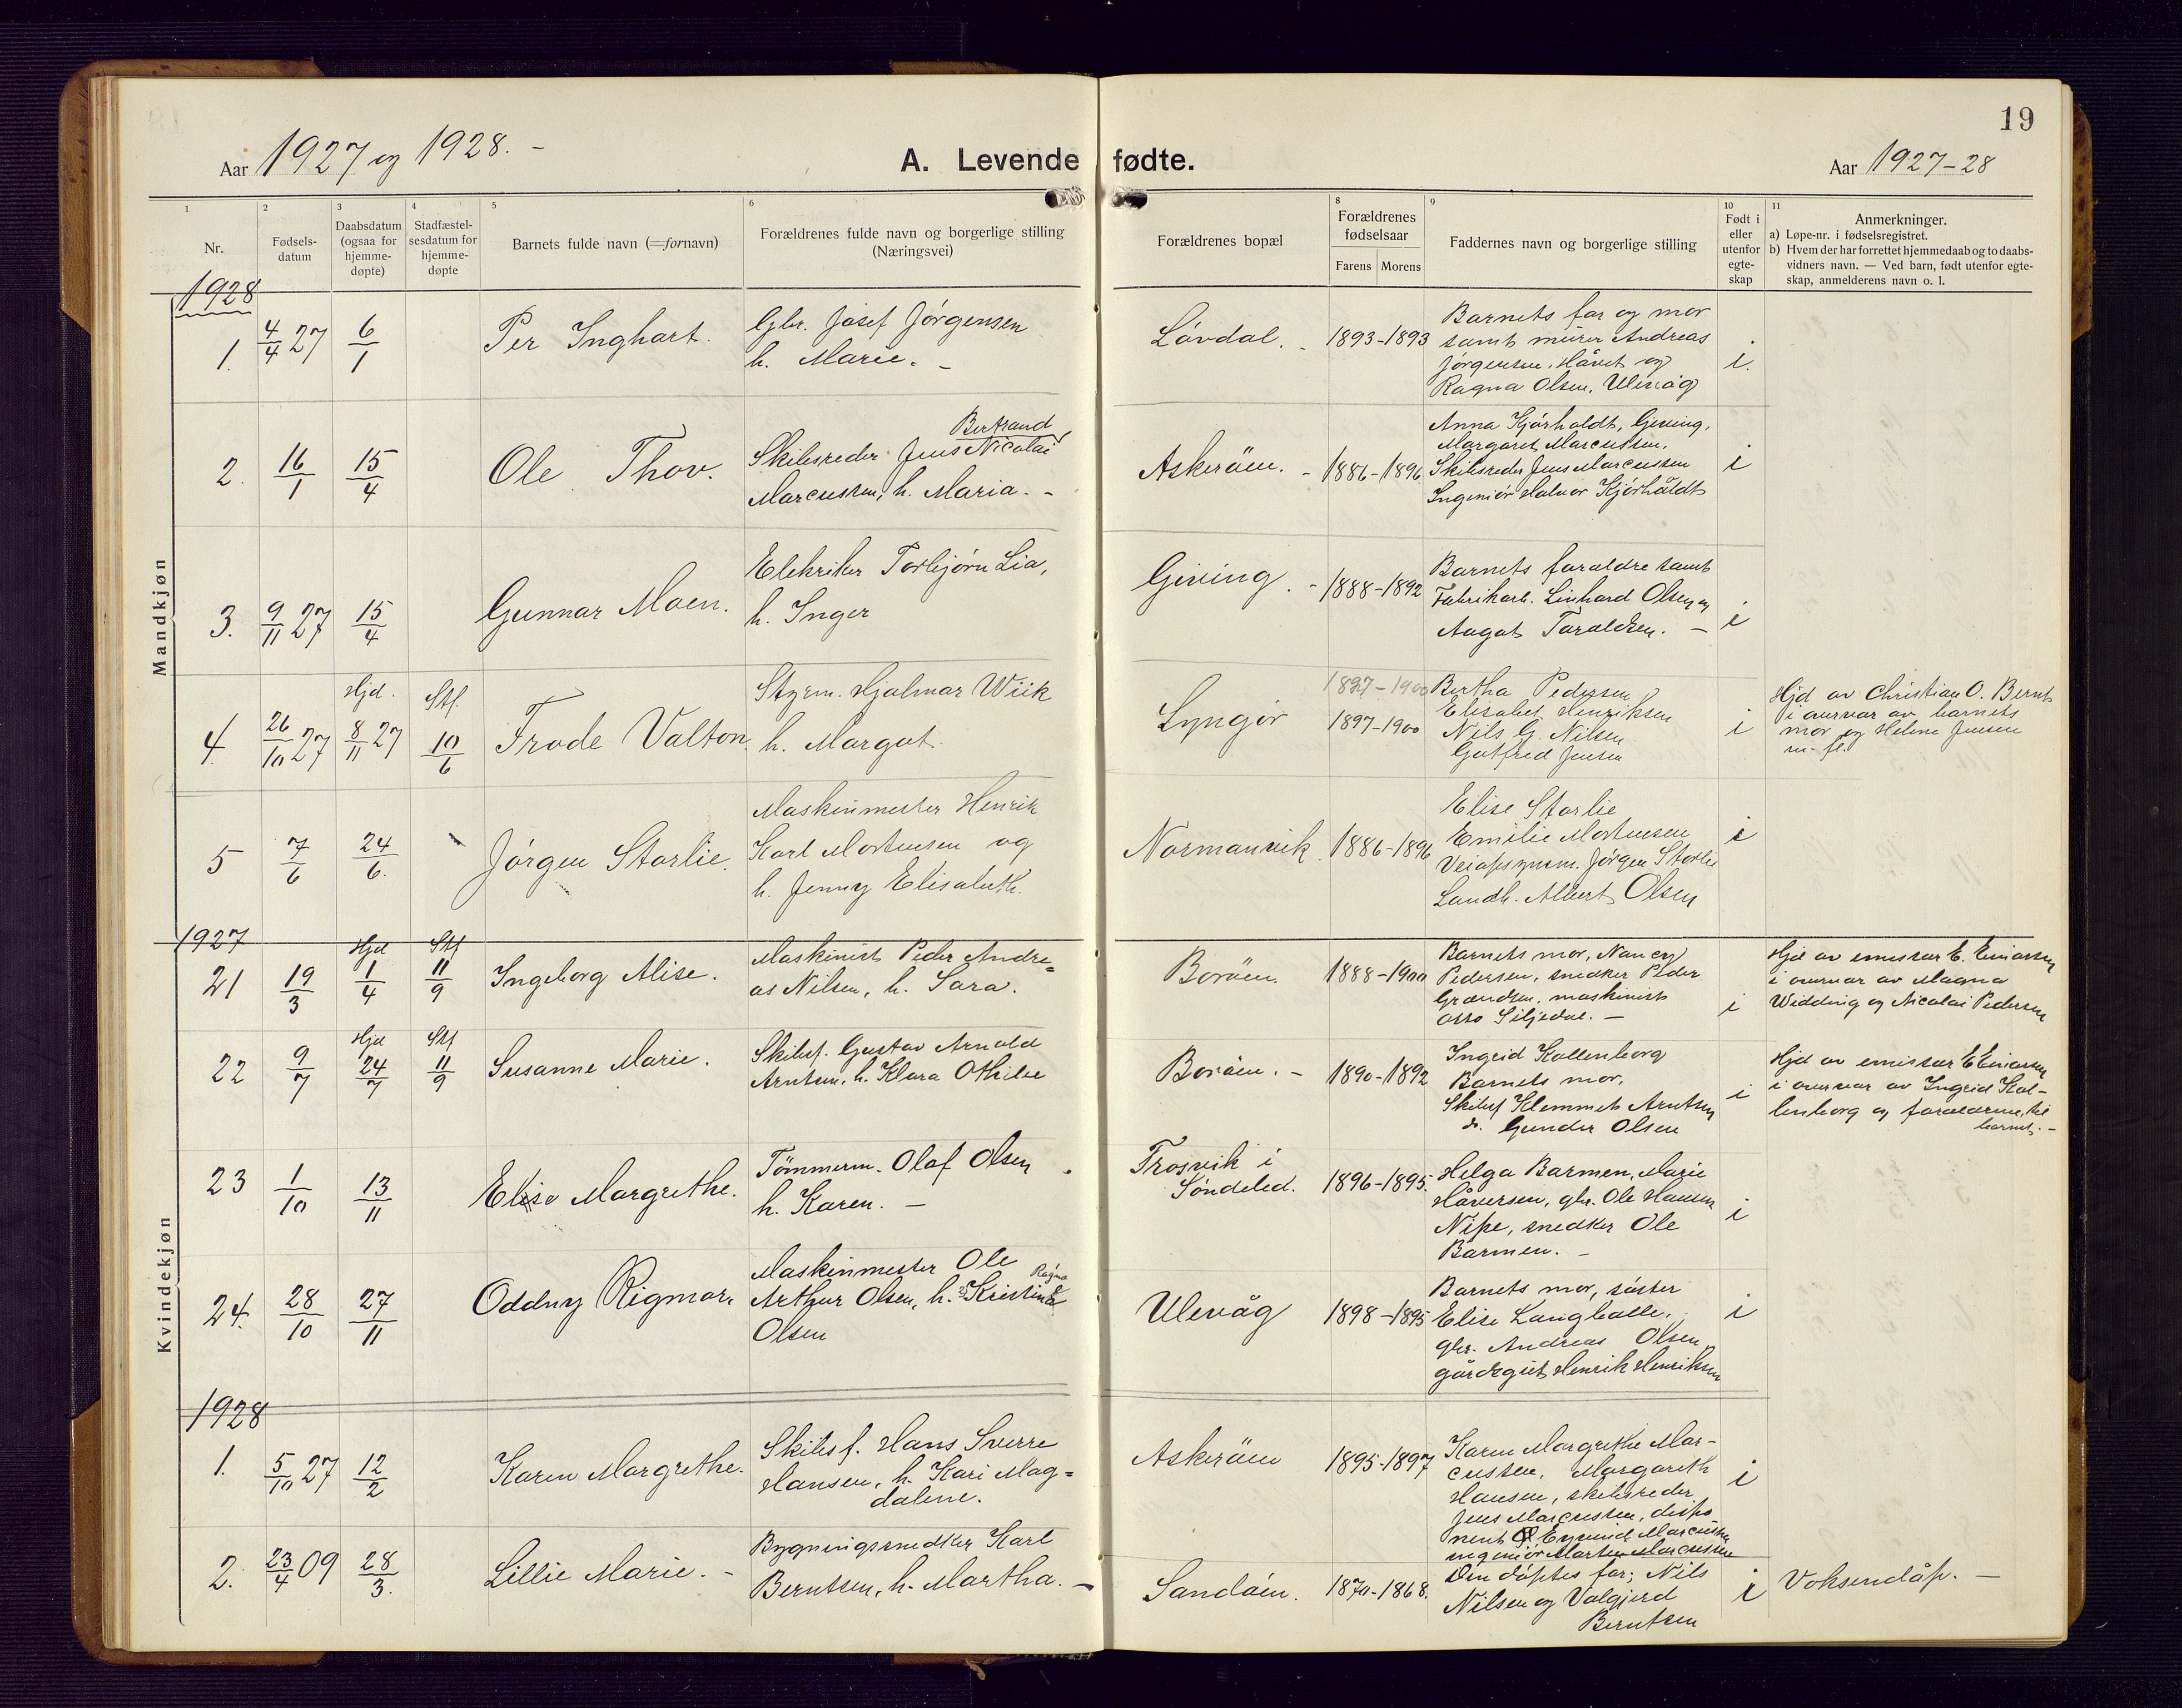 19
Aar 1927 og 1928. -
A. Levende fødte.
Aar 1927-28
1 2 3 4 5 6 8 9 10 11
Nr.
Fødselsdatum
Daabsdatum (ogsaa for hjemmedøpte)
Stadfæstelsesdatum for hjemmedøpte
Barnets fulde navn (=fornavn)
Forældrenes fulde navn og borgerlige stilling (Næringsvei)
Forældrenes bopæl
Forældrenes fødselsaar
Farens Morens
Faddernes navn og borgerlige stilling
Født i eller utenfor egteskap
Anmerkninger.
a) Løpe-nr. i fødselsregistret.
b) Hvem der har forrettet hjemmedaab og to daabsvidners navn. — Ved barn, født utenfor egteskap, anmelderens navn o. l.
Mandkjøn
1928
1. 4/4 27 6/1 Per Inghart.
Gbr. Josef Jørgensen
h. Marie. -
Løvdal. - 1893-1893
Barnets far og mor
samt murer Andreas
Jørgensen, Håvet og
Ragna Olsen, Ulevåg
i.
2. 16/1 15/4 Ole Thov.
Bertrand
Skibsreder Jens Nicolai
Marcussen, h. Maria. -
Askerøen. - 1886-1896
Anna Kjørholdt, Gjeving,
Margaret Marcussen,
Skibsreder Jens Marcussen
Ingeniør Halvor Kjørholdt
i
3. 9/11 27 15/4 Gunnar Moen.
Elektriker Torbjørn Lia,
h. Inger
Gjeving. - 1888-1892
Barnets foraldre samt
Fabrikarb. Linhard Olsen og
Aagot Taraldsen. -
i
4. 26/10 27 Hjd. 8/11 27 Stf. 10/6 Frode Valton.
Styrm. Hjalmar Wiik
h. Margot.
Lyngør 1897-1900
1897-1900
Bertha Pedersen
Elisabet Henriksen
Nils G. Nilsen
Gotfred Jensen
i
Hjd av Christian O. Bernt
i overvær av barnets
mor og Helene Jensen
m. fl.
5 7/6 24/6. Jørgen Storlie.
Maskinmester Henrik
Karl Mortensen og
h. Jenny Elisabeth.
Normanvik. 1886-1896
Elise Storlie
Emilie Mortensen
Veiopsynsm. Jørgen Storlie
Landh. Albert Olsen
i
Kvindekjøn
1927
21 19/3 Hjd 1/4 Stf 11/9 Ingeborg Alise.
Maskinist Peder Andre=
as Nilsen, h. Sara.
Borøen. 1888-1900
Barnets mor, Nancy
Pedersen, snedker Peder
Grændsen, maskinist
Osso Siljedal. -
i
Hjd av emissær E. Einarsen
i overvær av Magna
Widding og Nicolai Pedersen
22 9/7 Hjd 24/7 Stf 11/9 Susanne Marie.
Skibsf. Gustav Arnold
Arntsen, h. Klara Othilie
Borøen. - 1890-1892
Ingrid Kallenborg
Barnets mor,
Skibsf Klemmet Arntsen
do. Gunder Olsen
i
Hjd av emissær E Einarsen
i overvær av Ingrid Kal-
lenborg og foraldrene til
barnet. -
23 1/10 13/11 Elise Margrethe.
Tømmerm. Olaf Olsen
h. Karen. -
Trosvik i
Søndeled. 1896-1895.
Helga Barmen, Marie
Håversen, gbr. Ole Hansen
Nipe, snedker Ole
Barmen. -
i
24. 28/10 27/11 Oddny Rigmor.
Maskinmester Ole
Ragna
Arthur Olsen, h. Kristine
Olsen
Ulevåg 1898-1895
Barnets mor, søster
Elise Langballe,
gbr. Andreas Olsen,
gårdsgut Henrik Henriksen
i
1928
1. 5/10 27 12/2 Karen Margrethe.
Skibsf. Hans Sverre
Hansen, h. Kari Mag=
dalene.
Askerøen 1895-1897
Karen Margrethe Mar-
cussen, Margareth
Hansen, skibsreder
Jens Marcussen, dispo
nent Eyvind Marcussen
ingeniør Marten Marcussen
i
2. 23/4 09 28/3. Lillie Marie. -
Bygningssnedker Karl
Berntsen, h. Martha. -
Sandøen. 1870-1868.
Den døptes far, Nils
Nilsen og Valgjerd
Berntsen
i
Voksendåp. -